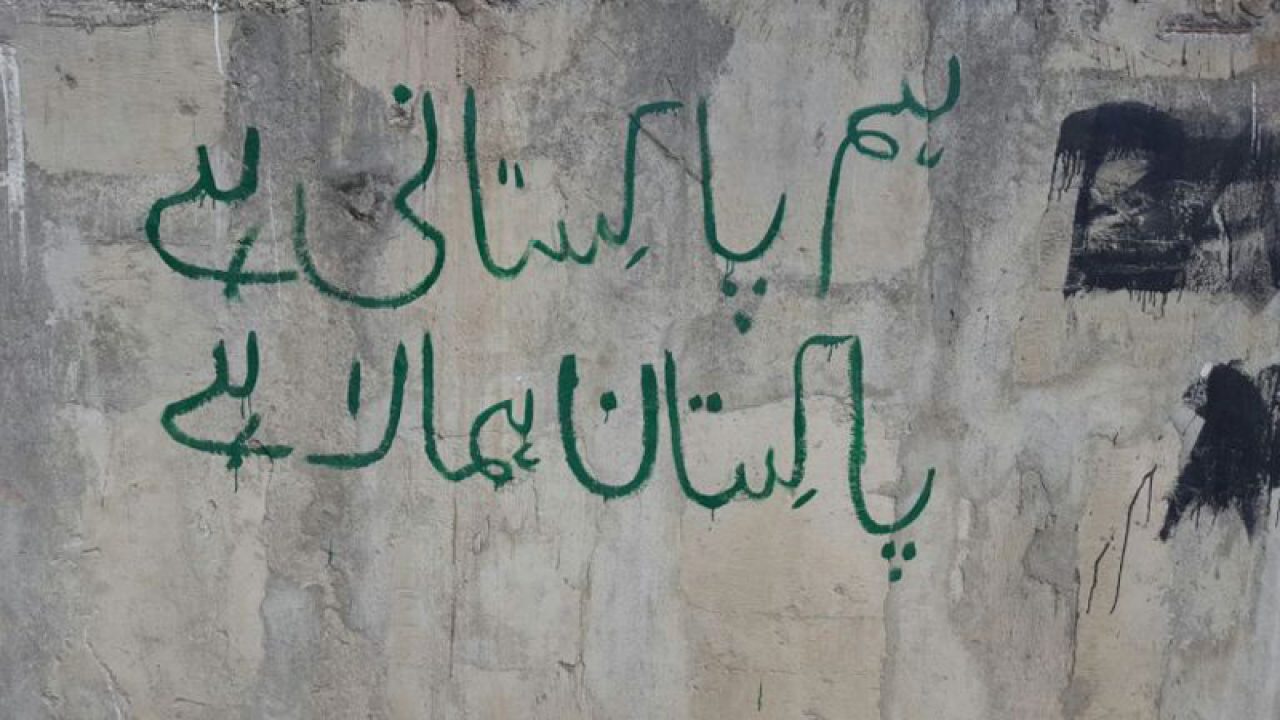 ہم پاکستانی ہے
پاکستان ہمالا ہے